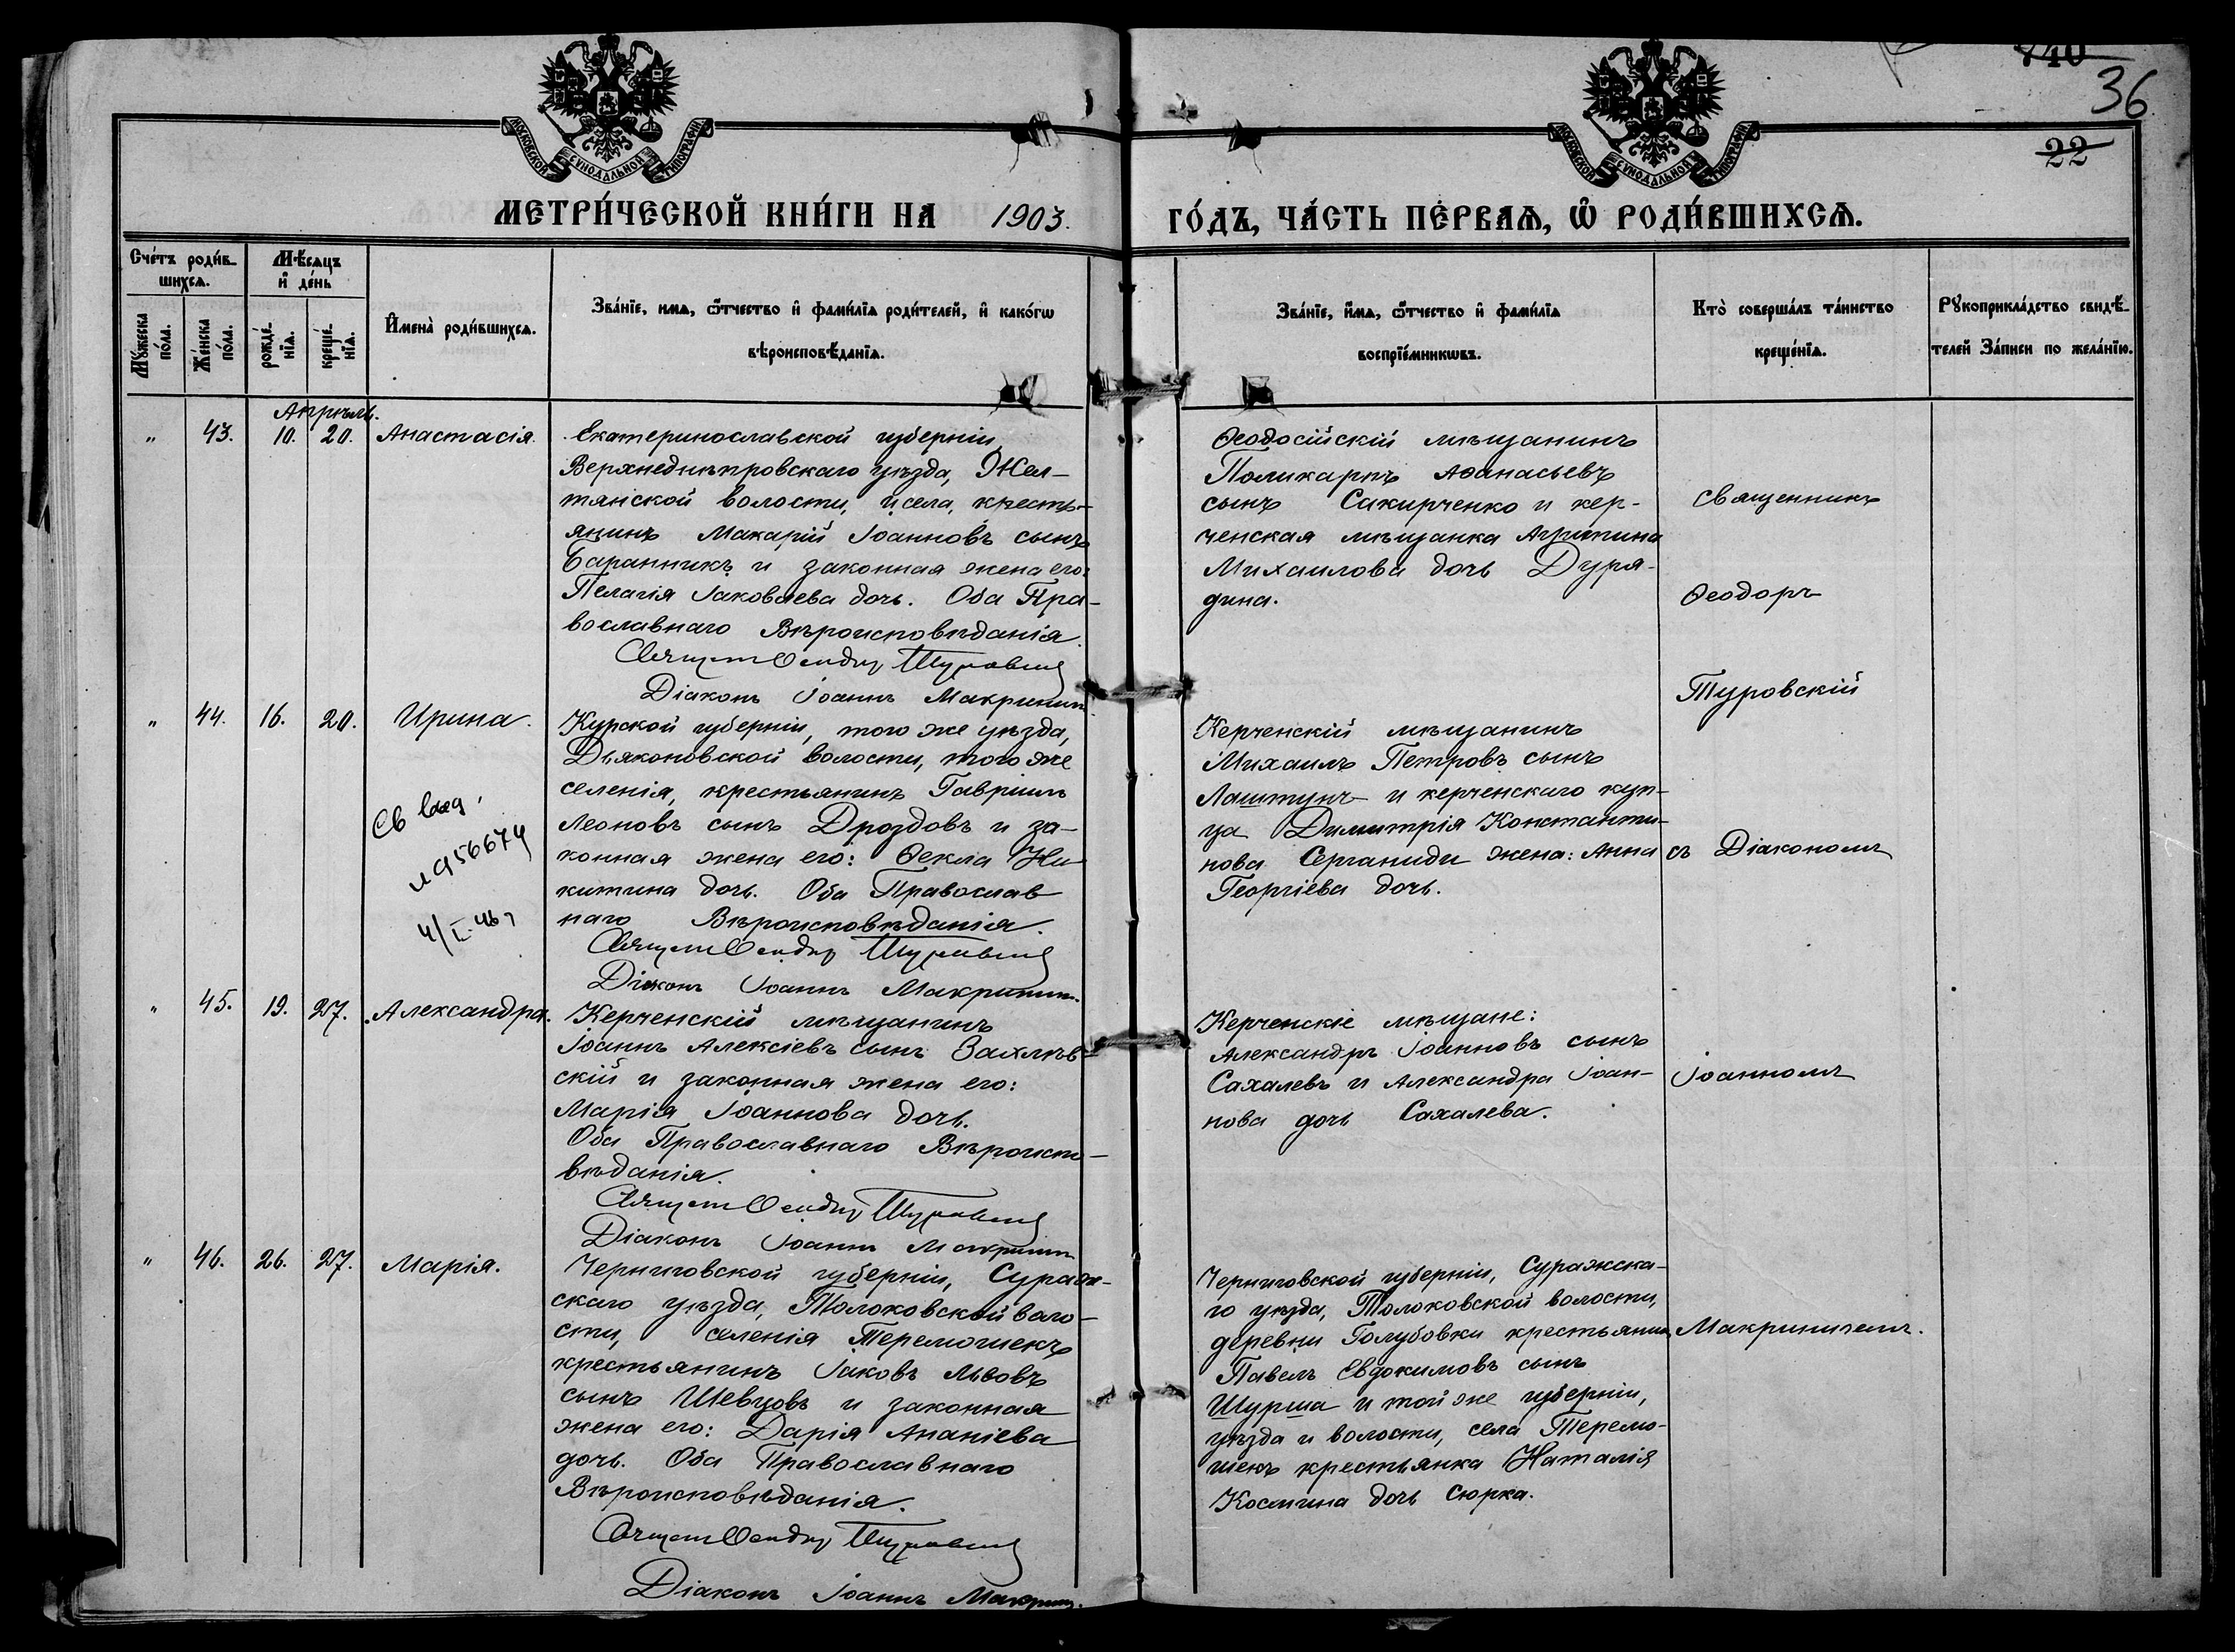 740
36
22
МОСКОВСКОЙ СѴНОДАЛЬНОЙ ТИПОГРАФІИ
МОСКОВСКОЙ СѴНОДАЛЬНОЙ ТИПОГРАФІИ
МЕТРИ́ЧЕСКОЙ КНИ́ГИ НА 1903.
ГО́ДЪ, ЧА́СТЬ ПЕ́РВАѦ, Ѡ҆ РОДИ́ВШИХСѦ.
Сче́тъ роди́в-
шихсѧ.
Мѣ́сѧцъ
и҆ де́нь
Мꙋ́жеска
по́ла.
Же́нска
по́ла.
рожде́-
нїѧ.
креще́-
нїѧ.
И҆мена̀ роди́вшихсѧ.
Зва́нїе, имѧ, ѻ҆́тчество и҆ фами́лїѧ роди́телей, и҆ како́гѡ
вѣроисповѣ́данїѧ.
Зва́нїе, и҆́мѧ, ѻ҆́тчество и҆ фами́лїѧ
воспрїе́мникѡвъ.
Кто̀ соверша́лъ та́инство
креще́нїѧ.
Рꙋкоприкла́дство свидѣ́-
телей За́писи по жела́нїю.
Апрѣль.
" 43. 10. 20. Анастасія.
Екатеринославской губерніи,
Верхнеднѣпровскаго уѣзда, Жел-
тянской волости, и села, кресть-
янинъ Макарій Іоанновъ сынъ
Баранникъ и законная жена его:
Пелагія Іаковлева дочь. Оба Пра-
вославнаго Вѣроисповѣданія.
Діаконъ Іоаннъ Макринич
Ѳеодосійскій мѣщанинъ
Поликарпъ Аѳанасьевъ
сынъ Сакирченко и кер-
ченская мѣщанка Агрипина
Михаилова дочь Дуря-
дина.
Священникъ
Ѳеодоръ
Туровскій
" 44. 16. 20. Ирина.
Св выд.
4/I-46 г
Курской губерніи, того же уѣзда,
Дьяконовской волости, того же
селенія, крестьянинъ Гавріилъ
Леоновъ сынъ Дроздовъ и за-
конная жена его: Ѳекла Ни-
китина дочь. Оба Православ
наго Вѣроисповѣданія.
Діаконъ Іоаннъ Макринич.
Керченскій мѣщанинъ
Михаилъ Петровъ сынъ
Лаштунъ и керченскаго куп-
ца Димитрія Константи-
нова Серганиди жена: Анна
Георгіева дочь.
съ Діакономъ
" 45. 19. 27. Александра.
Керченскій мѣщанинъ
Іоаннъ Алексіевъ сынъ Захлѣв-
скій и законная жена его:
Марія Іоаннова дочь.
Оба Православнаго Вѣроиспо-
вѣданія.
Діаконъ Іоаннъ Макринич
Керченскіе мѣщане:
Александръ Іоанновъ сынъ
Сахалевъ и Александра Іоан-
нова дочь Сахалева.
Іоанномъ
" 46. 26. 27. Марія.
Черниговской губерніи, Сураж-
скаго уѣзда, Толоковской воло-
сти, селенія Теремошекъ
крестьянинъ Іаковъ Львовъ
сынъ Шевцовъ и законная
жена его: Дарія Ананіева
дочь. Оба Православнаго
Вѣроисповѣданія.
Діаконъ Іоаннъ Макринич.
Черниговской губерніи, Суражска-
го уѣзда, Толоковской волости,
деревни Голубовки крестьянинъ
Павелъ Евдокимовъ сынъ
Шурша и той же губерніи,
уѣзда и волости, села Теремо-
шекъ крестьянка Наталія
Космина дочь Сюрка.
Макриничемъ.